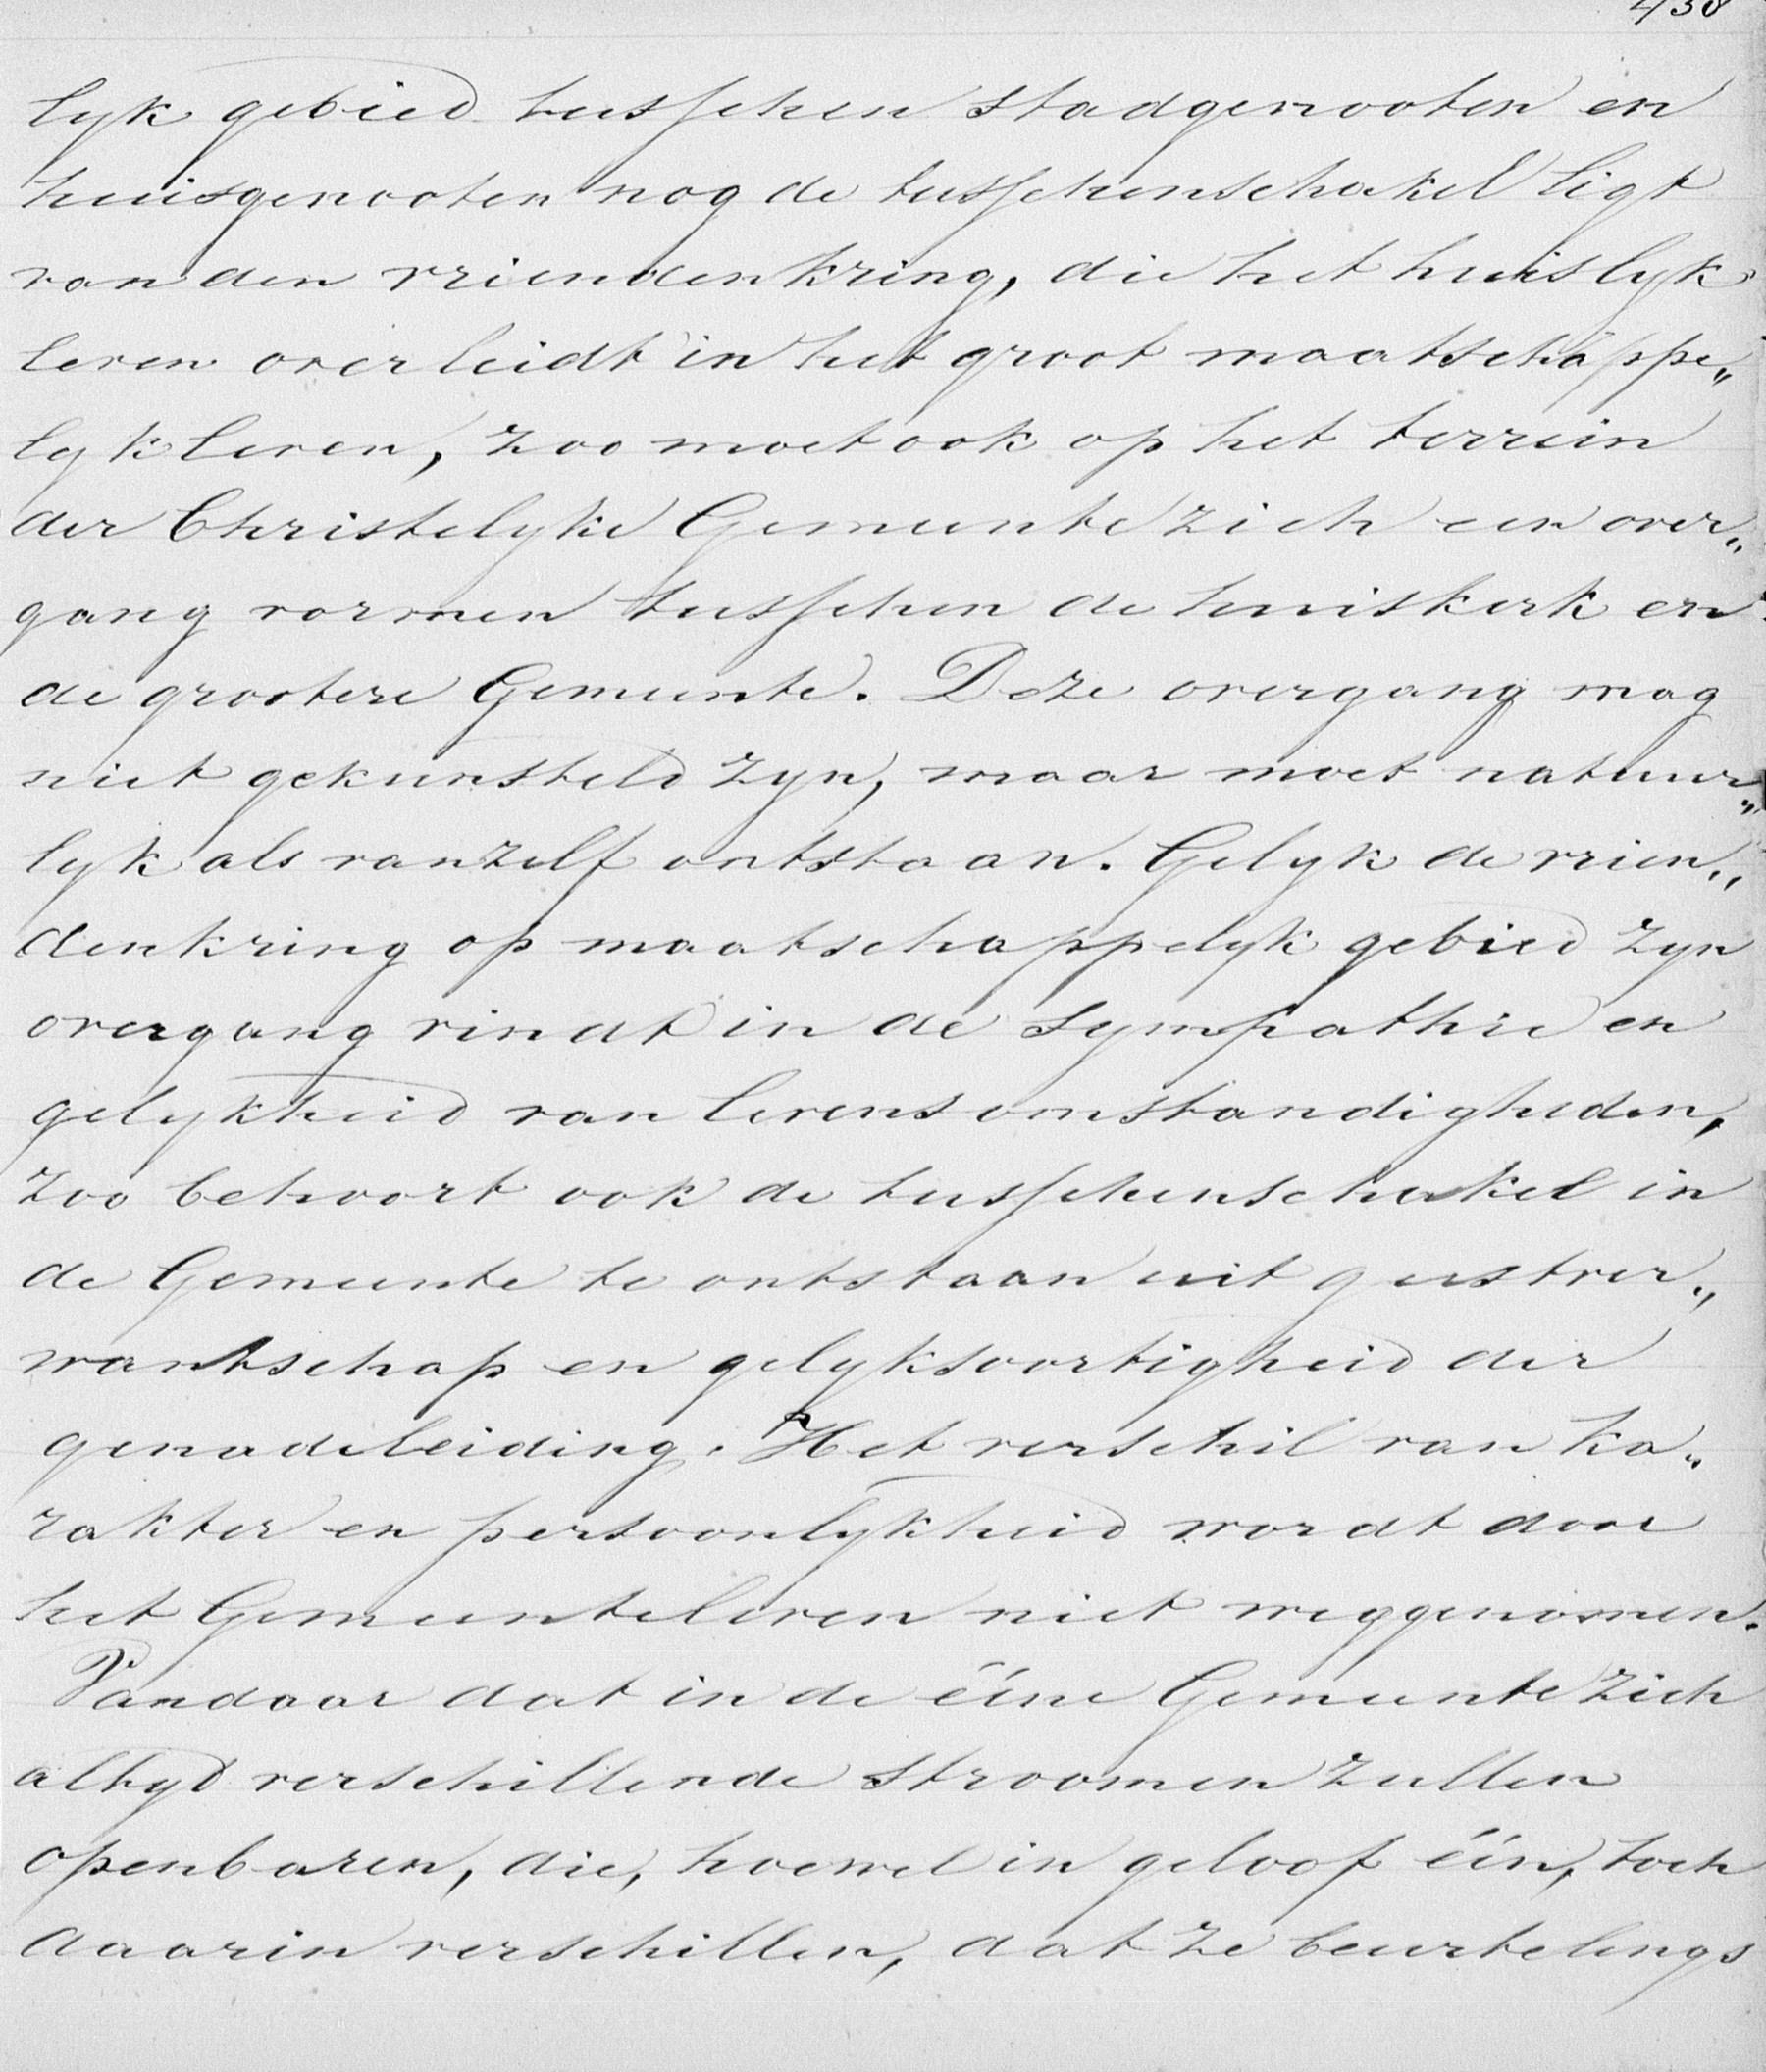 438
lyk gebied tusschen stadgenooten en
huisgenooten nog de tusschenschakel ligt
van den vriendenkring, die het huislyk
leven overleidt in het groot maatschappe„
lyk leven, zoo moet ook op het terrein
der Christelyke Gemeente zich een over„
gang vormen tusschen de huiskerk en
de grootere Gemeente. Deze overgang mag
niet gekunsteld zyn, maar moet natuur„
lyk als vanzelf ontstaan. Gelyk de vrien„
denkring op maatschappelyk gebied zyn
overgang vindt in de sympathie en
gelykheid van levensomstandigheden,
zoo behoort ook de tusschenschakel in
de Gemeente te ontstaan uit geestver„
wantschap en gelyksoortigheid der
genadeleiding. Het verschil van ka„
rakter en persoonlykheid wordt door
het Gemeenteleven niet weggenomen.
Vandaar dat in de ééne Gemeente zich
altyd verschillende stroomen zullen
openbaren, die, hoewel in geloof één, toch
daarin verschillen, dat ze beurtelings